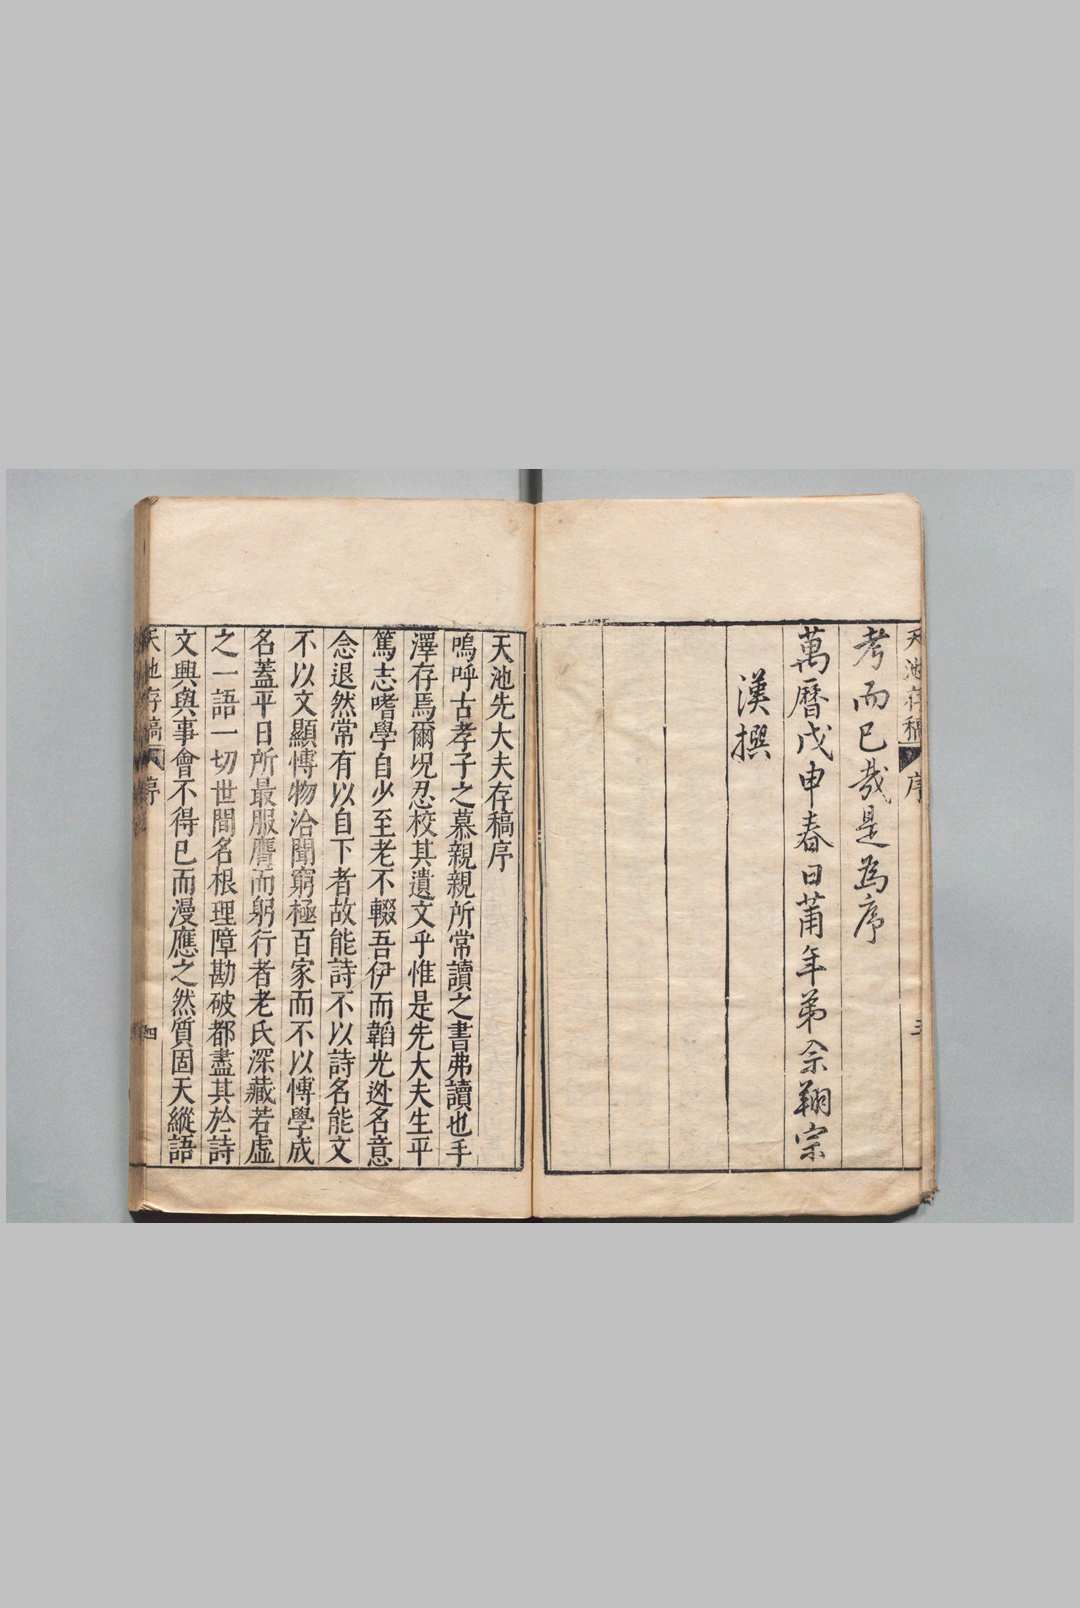 天池存稿 序
考而已哉是爲序
萬曆戊申春日莆年弟佘翔宗
漢撰
天池先大夫存稿序
嗚呼古孝子之慕親親所常讀之書弗讀也手
澤存焉爾况忍校其遺文乎惟是先大夫生平
篤志嗜學自少至老不輟吾伊而韜光迯名意
念退然常有以自下者故能詩不以詩名能文
不以文顯愽物洽聞窮極百家而不以愽學成
名蓋平日所最服膺而躬行者老氏深藏若虛
之一語一切世間名根理障勘破都盡其於詩
文興與事會不得已而漫應之然質固天縱語
天池存稿 序 四